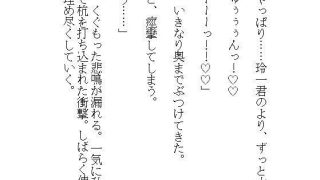 ゃっぱり……玲一君のより、ずっと
ゅぅぅぅんっー！♡♡
ーーーっー！♡♡」
いきなり奥までぶつけてきた。
と、痙攣してしまう。
っ……」
くぐもった悲鳴が漏れる。一気に
杭を打ち込まれた衝撃。しばらく
埋め尽くしていく。